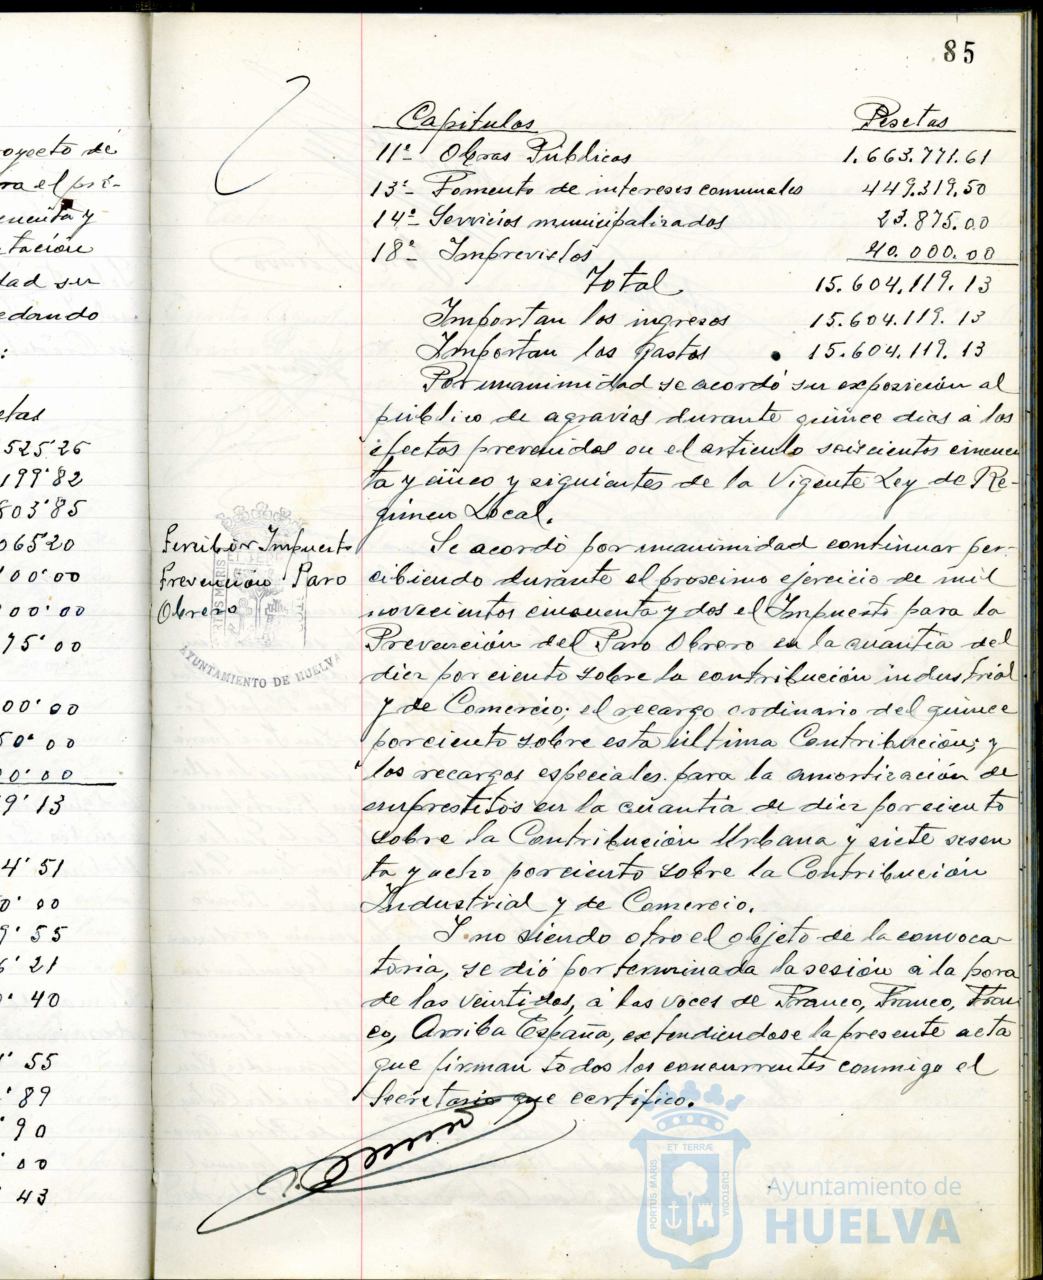 royecto de
ra el pre-
uenta y
tación
dad ser
edando
:
etas
525'26
199'82
803'85
06520
100'00
00'00
75'00
00'00
50'00
00'00
9'13
4'51
0'00
9'55
6'21
0'40
1'55
'89
'90
'00
'43
85
Capitulos Pesetas
11º- Obras Publicas 1.663.771.61
13º- Fomento de intereses comunales 449.319.50
14º- Servicios municipalizados 23.875.00
18º- Imprevistos 40.000.00
Total 15.604.119.13
Importan los ingresos 15.604.119.13
Importan los gastos 15.604.119.13
Por unanimidad se acordó su exposición al
público de agravios durante quince dias á los
efectos prevenidos en el articulo seiscientos cincuen
ta y cinco y siguientes de la Vigente Ley de Ré-
gimen Local.
Percibir Impuesto
Prevención Paro
Obrero
Se acordó por unanimidad continuar per-
cibiendo durante el proximo ejercicio de mil
novecientos cincuenta y dos el Impuesto para la
Prevención del Paro Obrero en la cuantia del
diez por ciento sobre la contribución industrial
y de Comercio; el recargo ordinario del quince
por ciento sobre esta última Contribución; y
los recargos especiales para la amortización de
emprestitos en la cuantia de diez por ciento
sobre la Contribución Urbana y siete sesen
ta y ocho por ciento sobre la Contribución
Industrial y de Comercio.
Y no siendo otro el objeto de la convoca-
toria, se dió por terminada la sesión á la hora
de las veintidos, á las voces de Franco, Franco, Fran
co, Arriba España, extendiendose la presente acta
que firman todos los concurrentes conmigo el
Secretario que certifico.
PORTUS MARIS
ET TERRÆ
CUSTODIA
AYUNTAMIENTO DE HUELVA
Ayuntamiento de
HUELVA